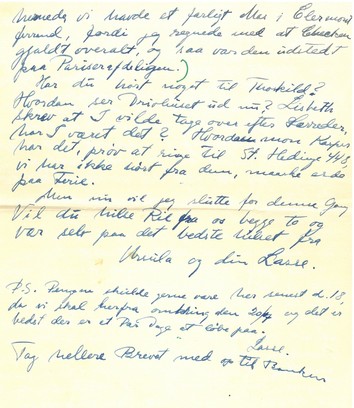 vi havde et farligt Mas i Clermont
Ferrand, fordi jeg regnede med at Checken
gjaldt overalt, og saa var den udstedt
paa Pariserafdelingen.)
Har du hørt noget til Thorkild?
Hvordan ser Drivhuset ud nu? Lisbeth
skrev at I vilde tage over efter
har I været det? Hvordan mon Kasper
har det, prøv at ringe til St. Hedinge 448,
vi har ikke hørt fra dem,
paa Ferie.
Men nu vil jeg slutte for denne Gang
Vil du hilse fra os begge to og
vær selv paa det bedste hilset fra
Ursula og din Lasse.
P.S. Pengene skulde gerne være her senest d. 18,
da vi skal herfra omkring den 20 og det er
bedst der er et Par Dage at løbe paa.
Lasse.
Tag hellere Brevet med op til Banken